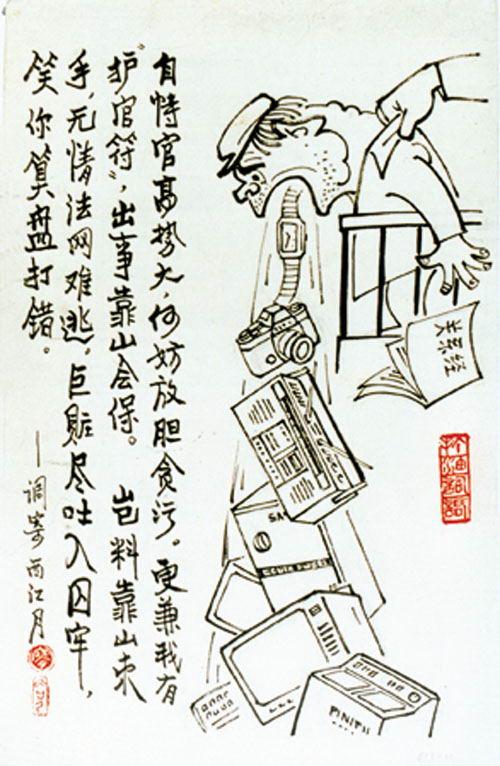 自恃官高势大，何妨放胆贪污。更兼我有
“护官符”，出事靠山会保。 岂料靠山束
手，无情法网难逃。巨赃尽吐入囚牢，
笑你算盘打错。
——调寄西江月
关系经